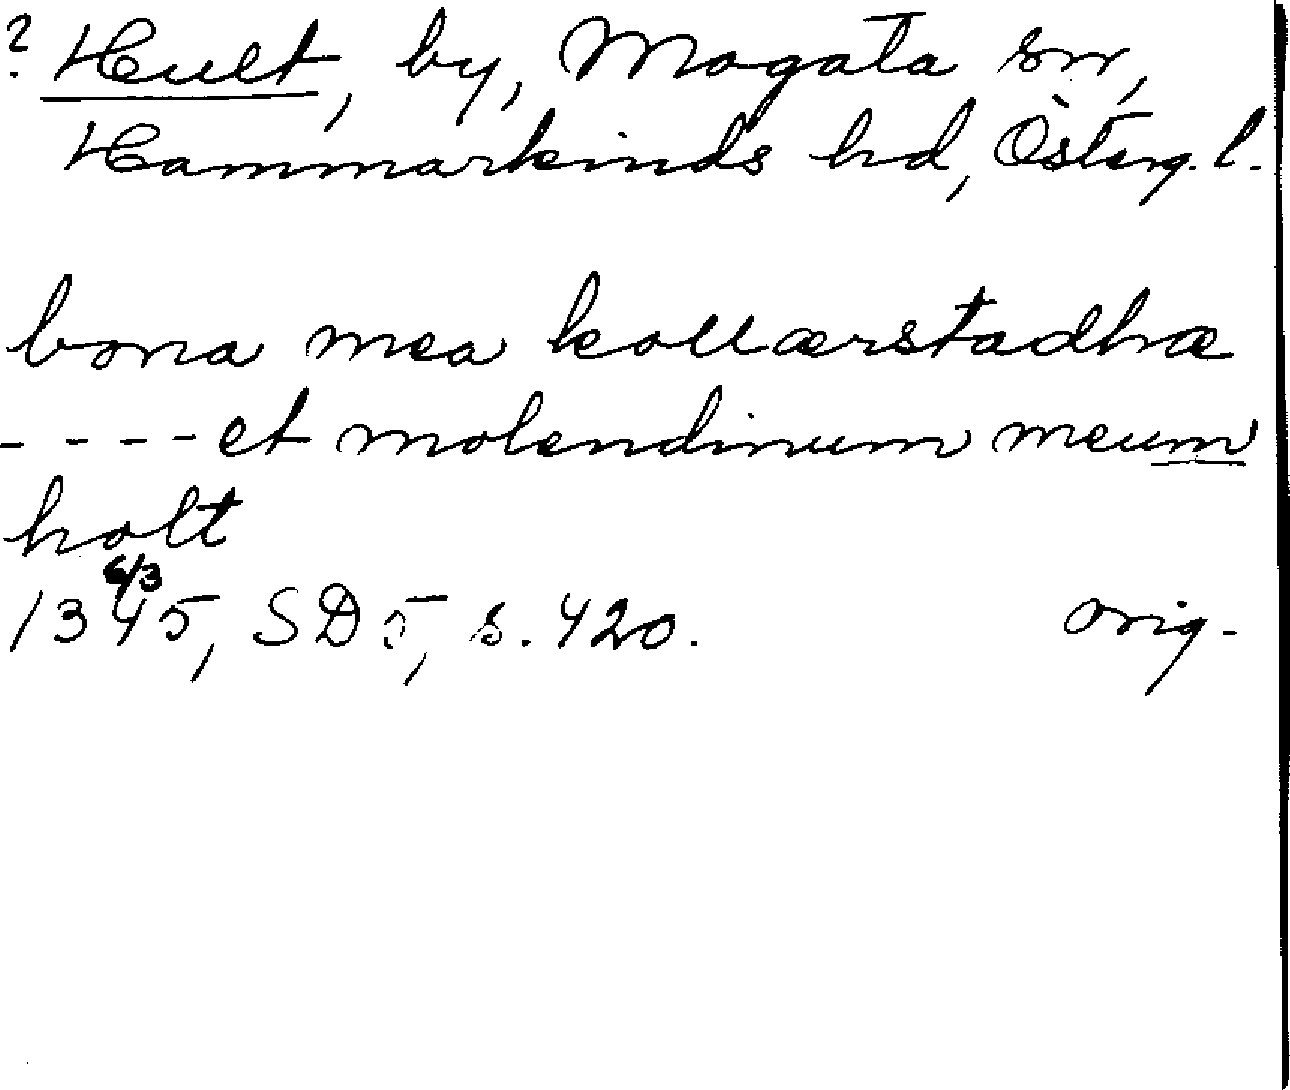 ? Hult, by, Mogata sn,
Hammarkinds hd, Österg. l.
bona mea kollærstadhæ
- - - - - et molendinum meum
holt
6/3
1345, SD 5, s. 420. orig.